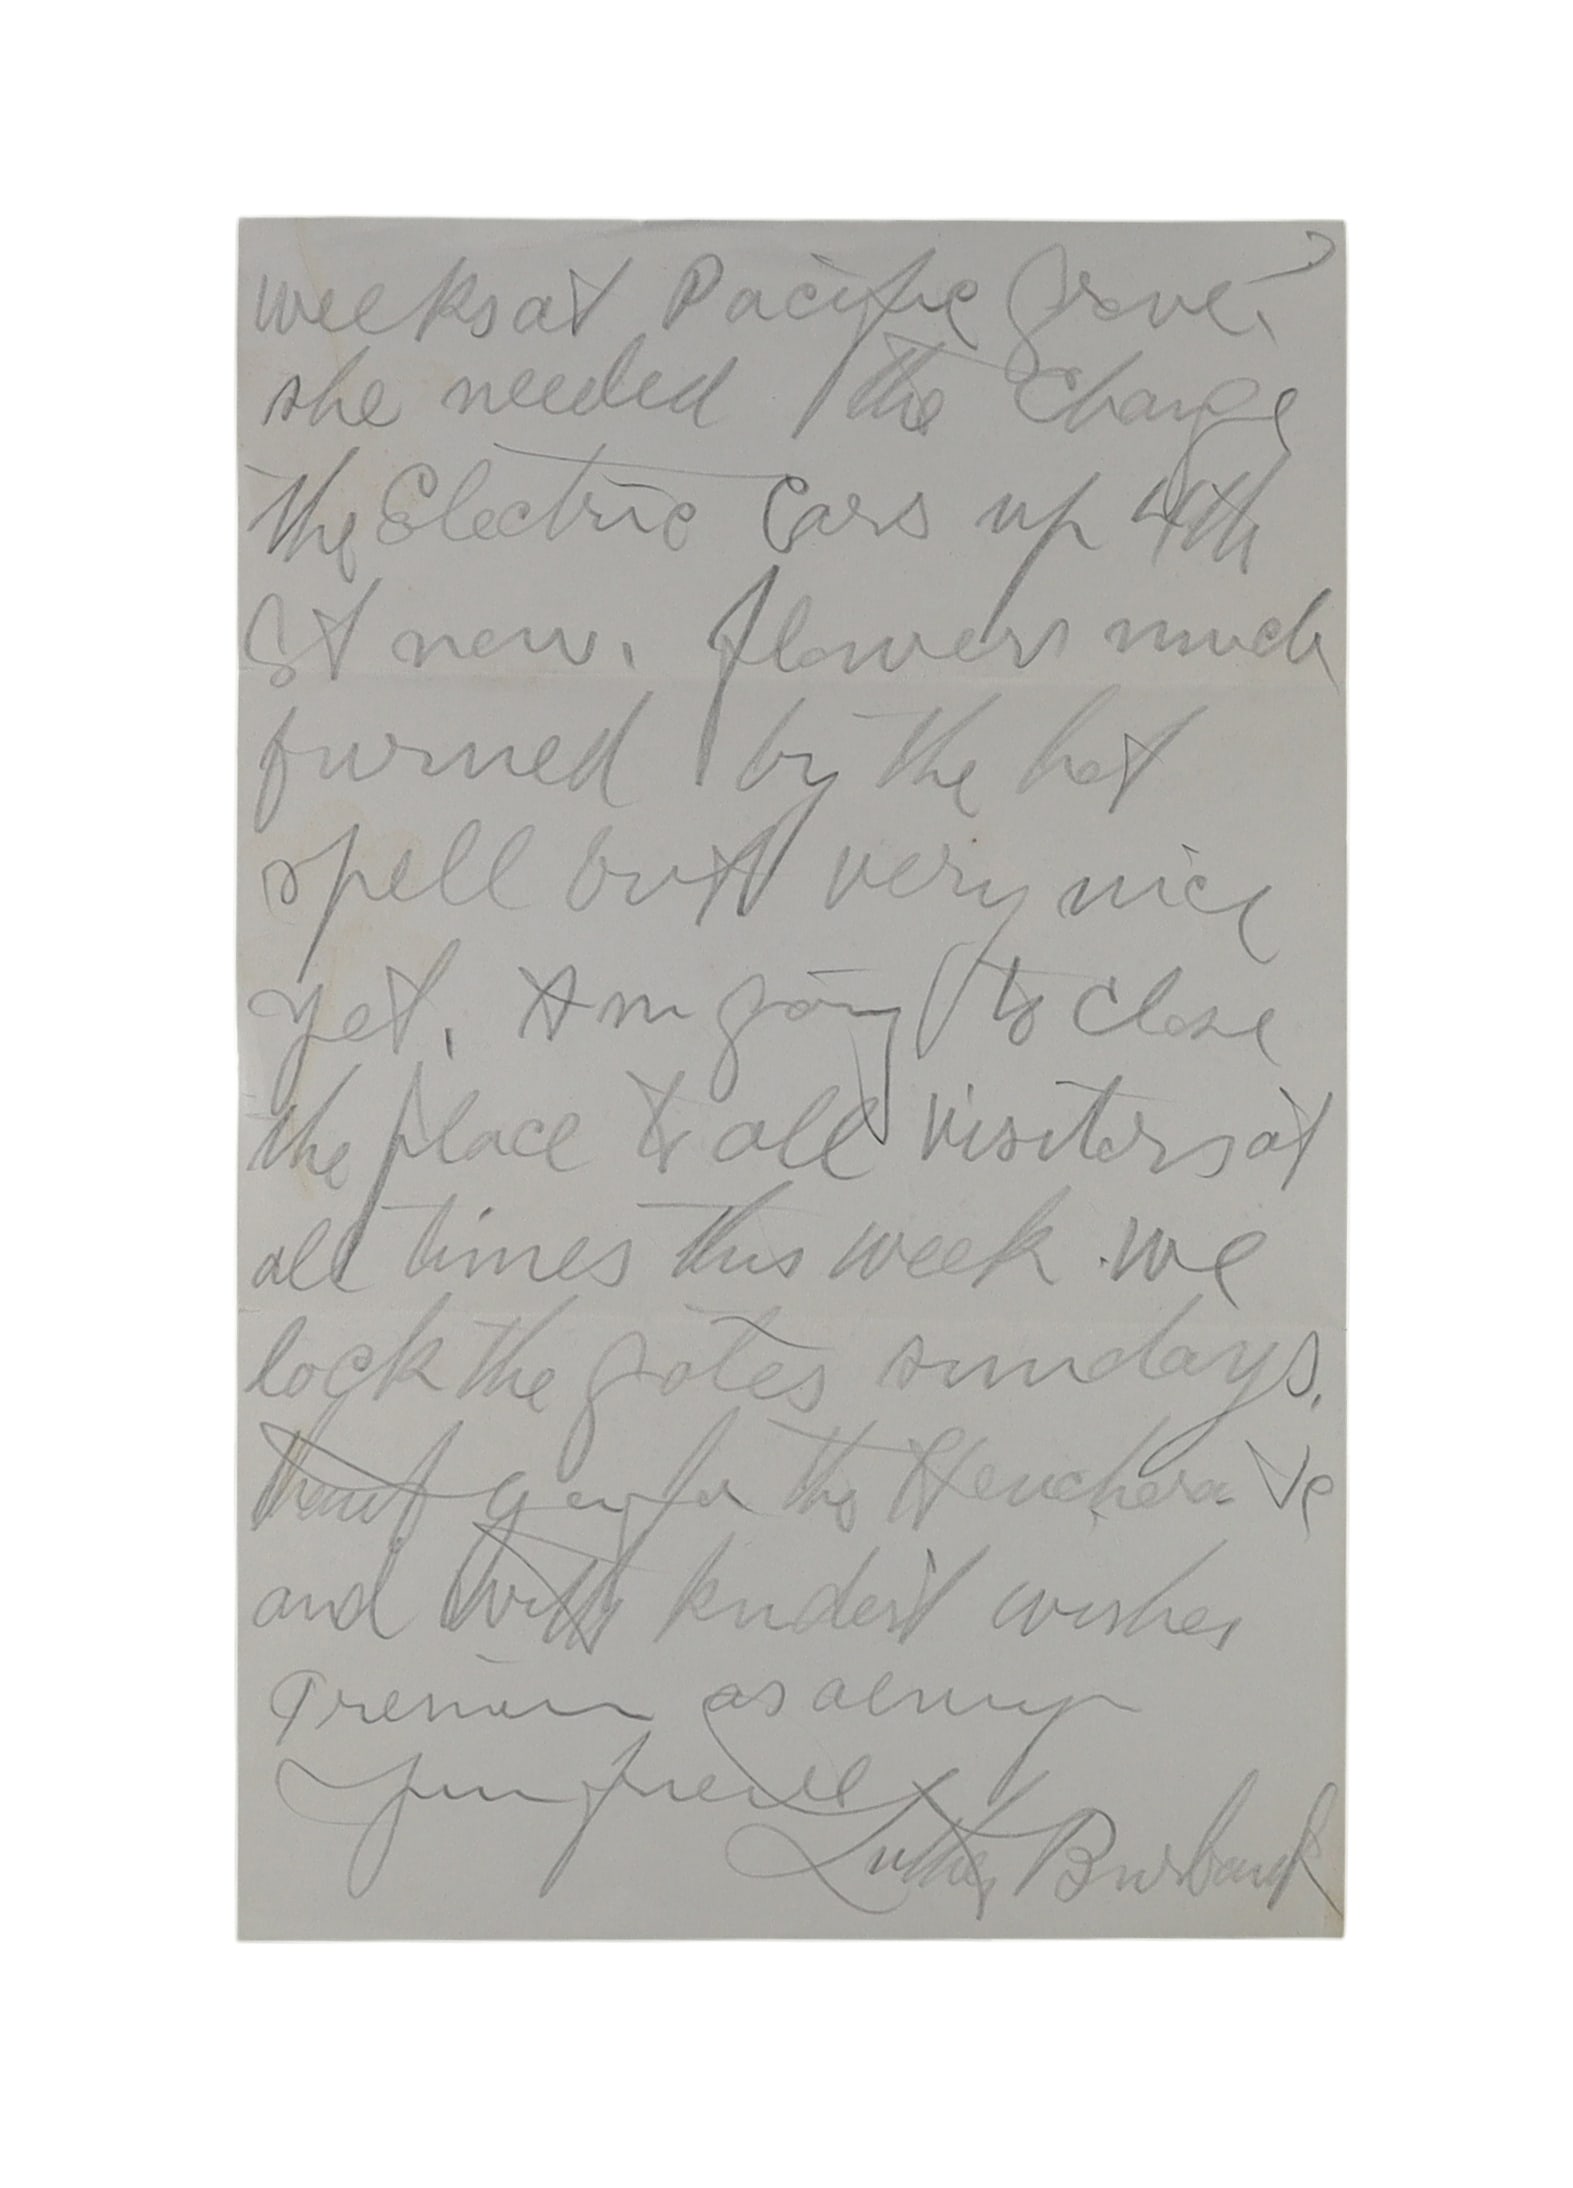 2
weeks at Pacific Grove.
she needed the change
the Electric Cars up 4th
St now. flowers much
burned by the hot
spell but very nice
yet. Am going to close
the place to all visitors at
all times this week. we
lock the gates sundays.
thank you for the Heuchera &c
and with kindest wishes
I remain as always
Your friend
Luther Burbank